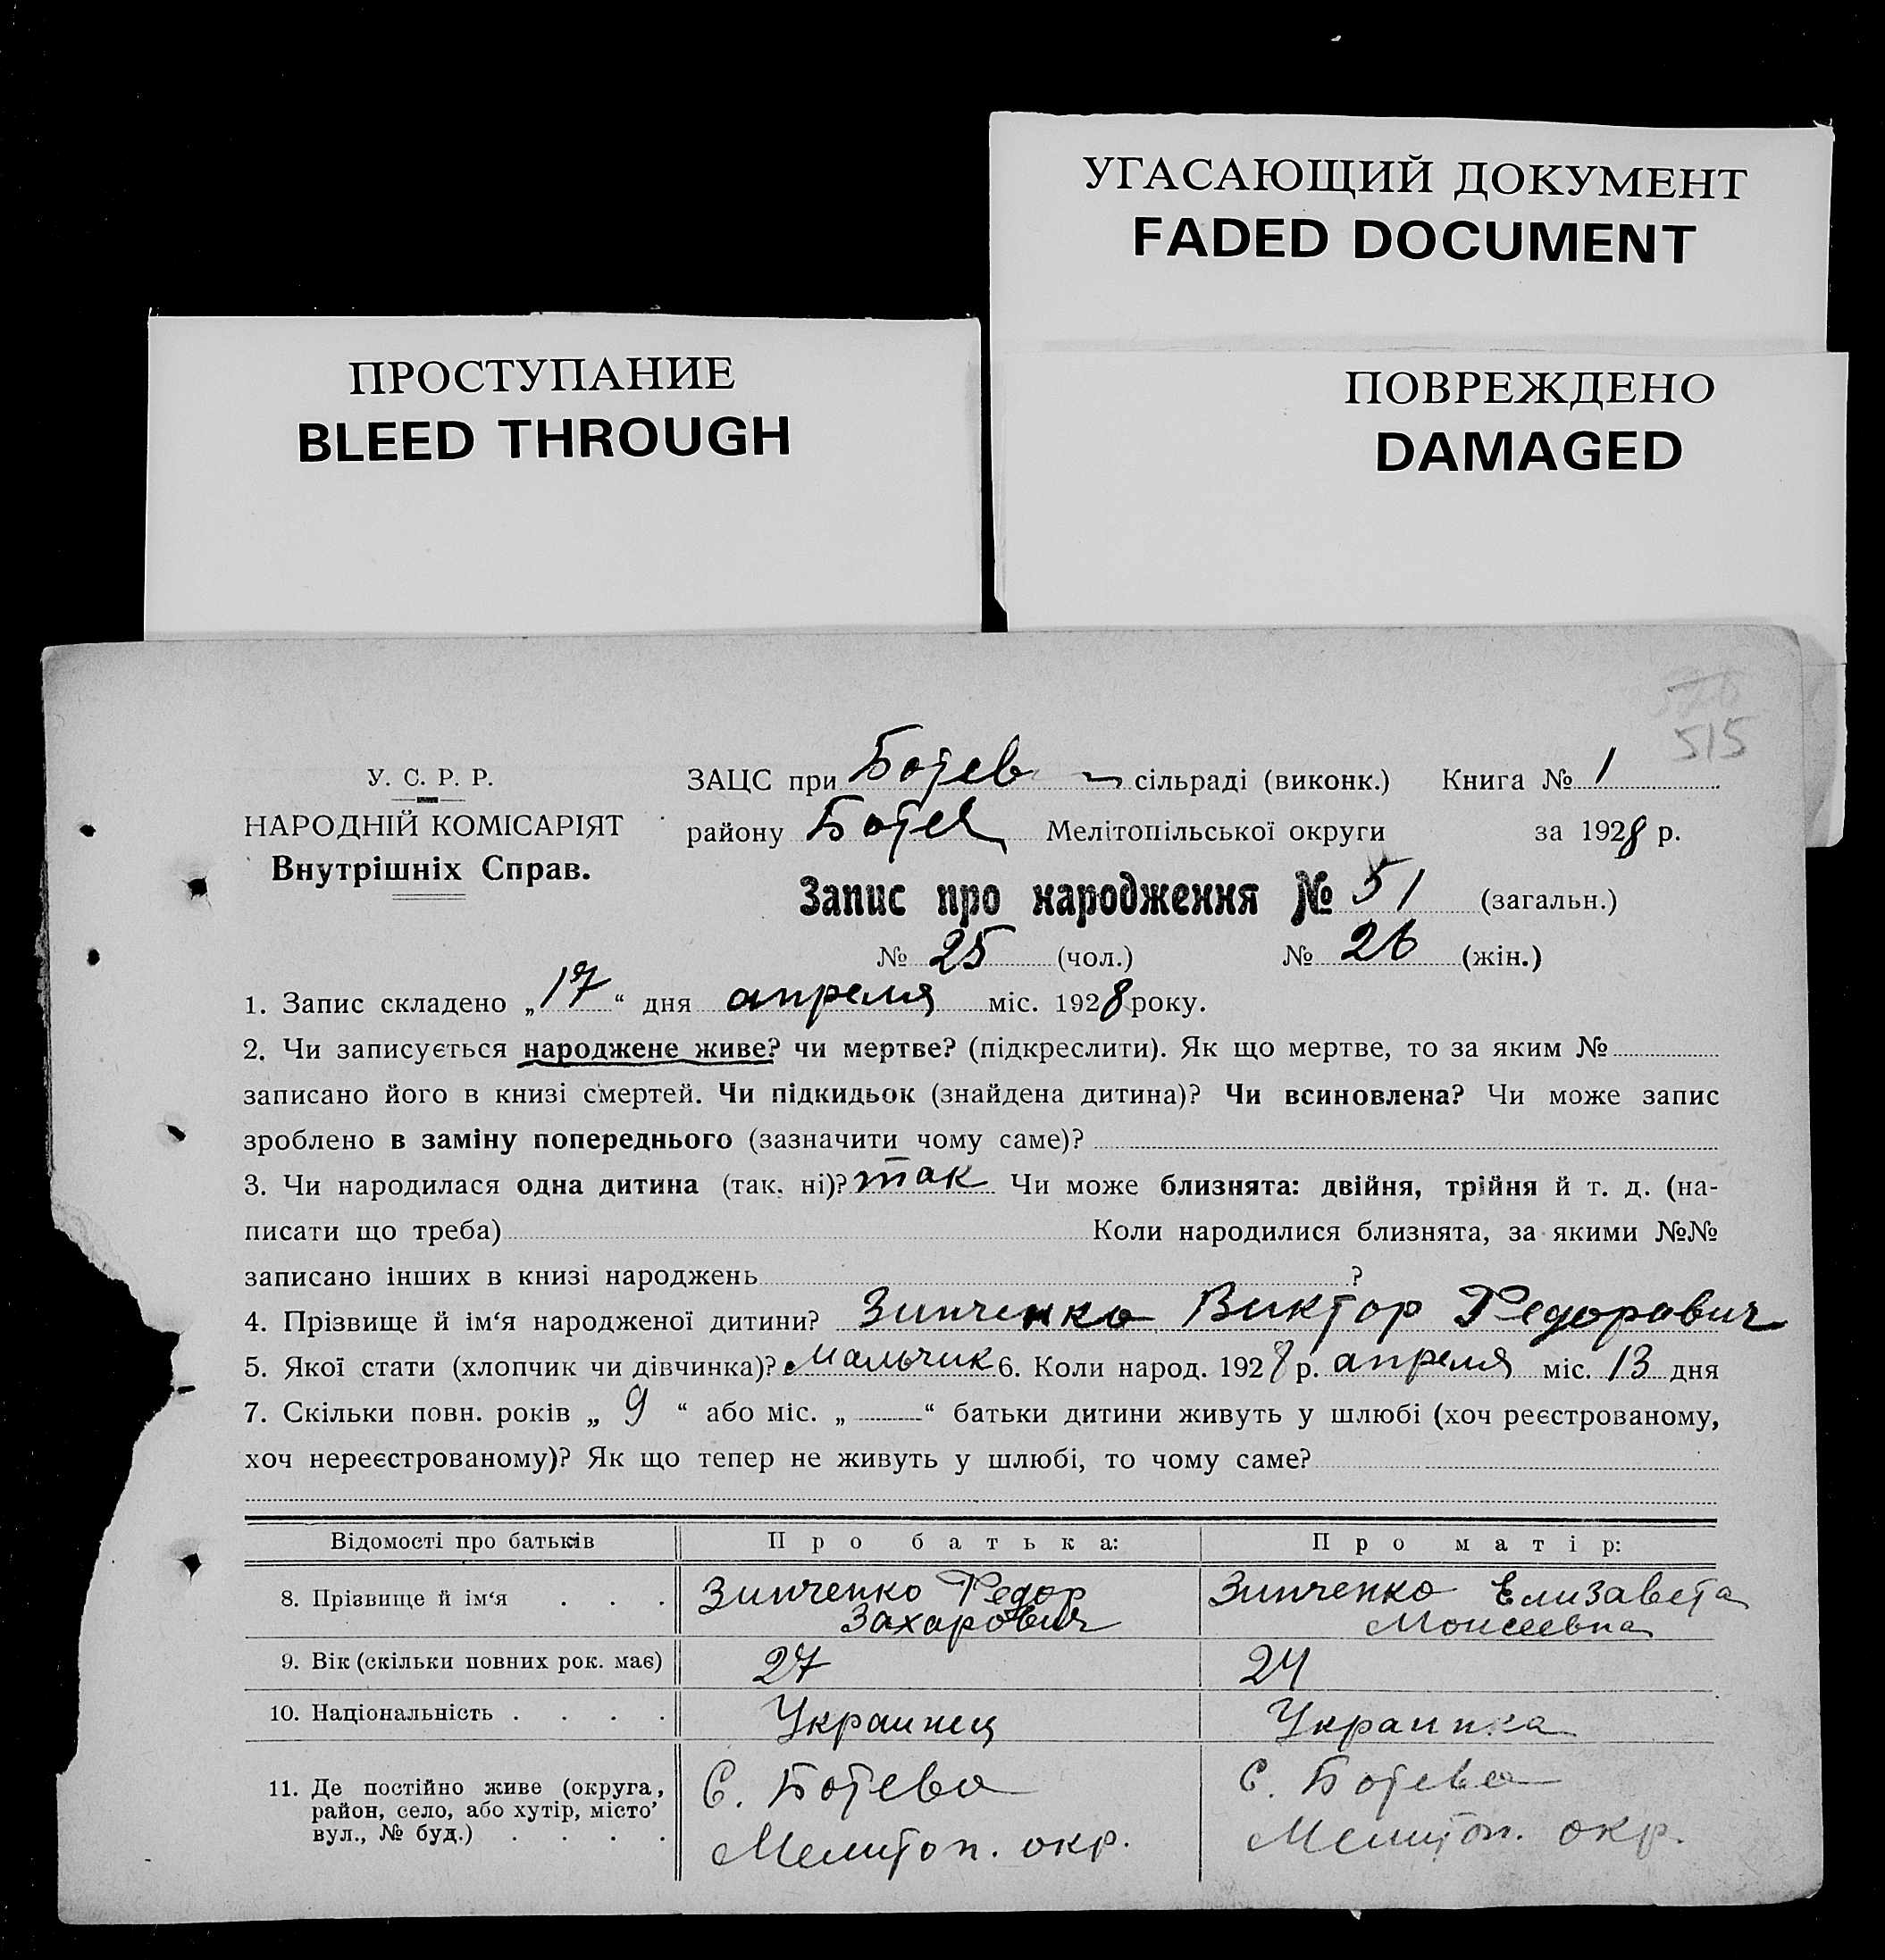 УГАСАЮЩИЙ ДОКУМЕНТ
FADED DOCUMENT
ПРОСТУПАНИЕ
BLEED THROUGH
ПОВРЕЖДЕНО
DAMAGED
515
У. С. Р. Р.
НАРОДНІЙ КОМІСАРІЯТ
Внутрішніх Справ.
ЗАЦС при Ботев сільраді (виконк.) Книга № 1
району Ботев Мелітопільської округи за 1928 р.
Запис про народження № 51 (загальн.)
№ 25 (чол.) № 26 (жін.)
1. Запис складено „17“ дня апреля міс. 1928 року.
2. Чи записується народжене живе? чи мертве? (підкреслити). Як що мертве, то за яким №
записано його в книзі смертей. Чи підкидьок (знайдена дитина)? Чи всиновлена? Чи може запис
зроблено в заміну попереднього (зазначити чому саме)?
3. Чи народилася одна дитина (так. ні)? так Чи може близнята: двійня, трійня й т. д. (на-
писати що треба) Коли народилися близнята, за якими №№
записано інших в книзі народжень ?
4. Прізвище й ім‘я народженої дитини? Зинченко Виктор Федорович
5. Якої стати (хлопчик чи дівчинка)? Мальчик 6. Коли народ. 1928 р. апреля міс. 13 дня
7. Скільки повн. років „ 9 “ або міс. „ “ батьки дитини живуть у шлюбі (хоч реєстрованому,
хоч нереєстрованому)? Як що тепер не живуть у шлюбі, то чому саме?
Відомості про батьків Про батька: Про матір:
8. Прізвище й ім‘я . . . Зинченко Федор Захарович Зинченко Елизавета Моисеевна
9. Вік (скільки повних рок. має) 27 24
10. Національність . . . . Украинец Украинка
11. Де постійно живе (округа, район, село, або хутір, місто’ вул., № буд.) . . . . С. Ботево Мелитоп. окр. С. Ботево Мелитоп. окр.